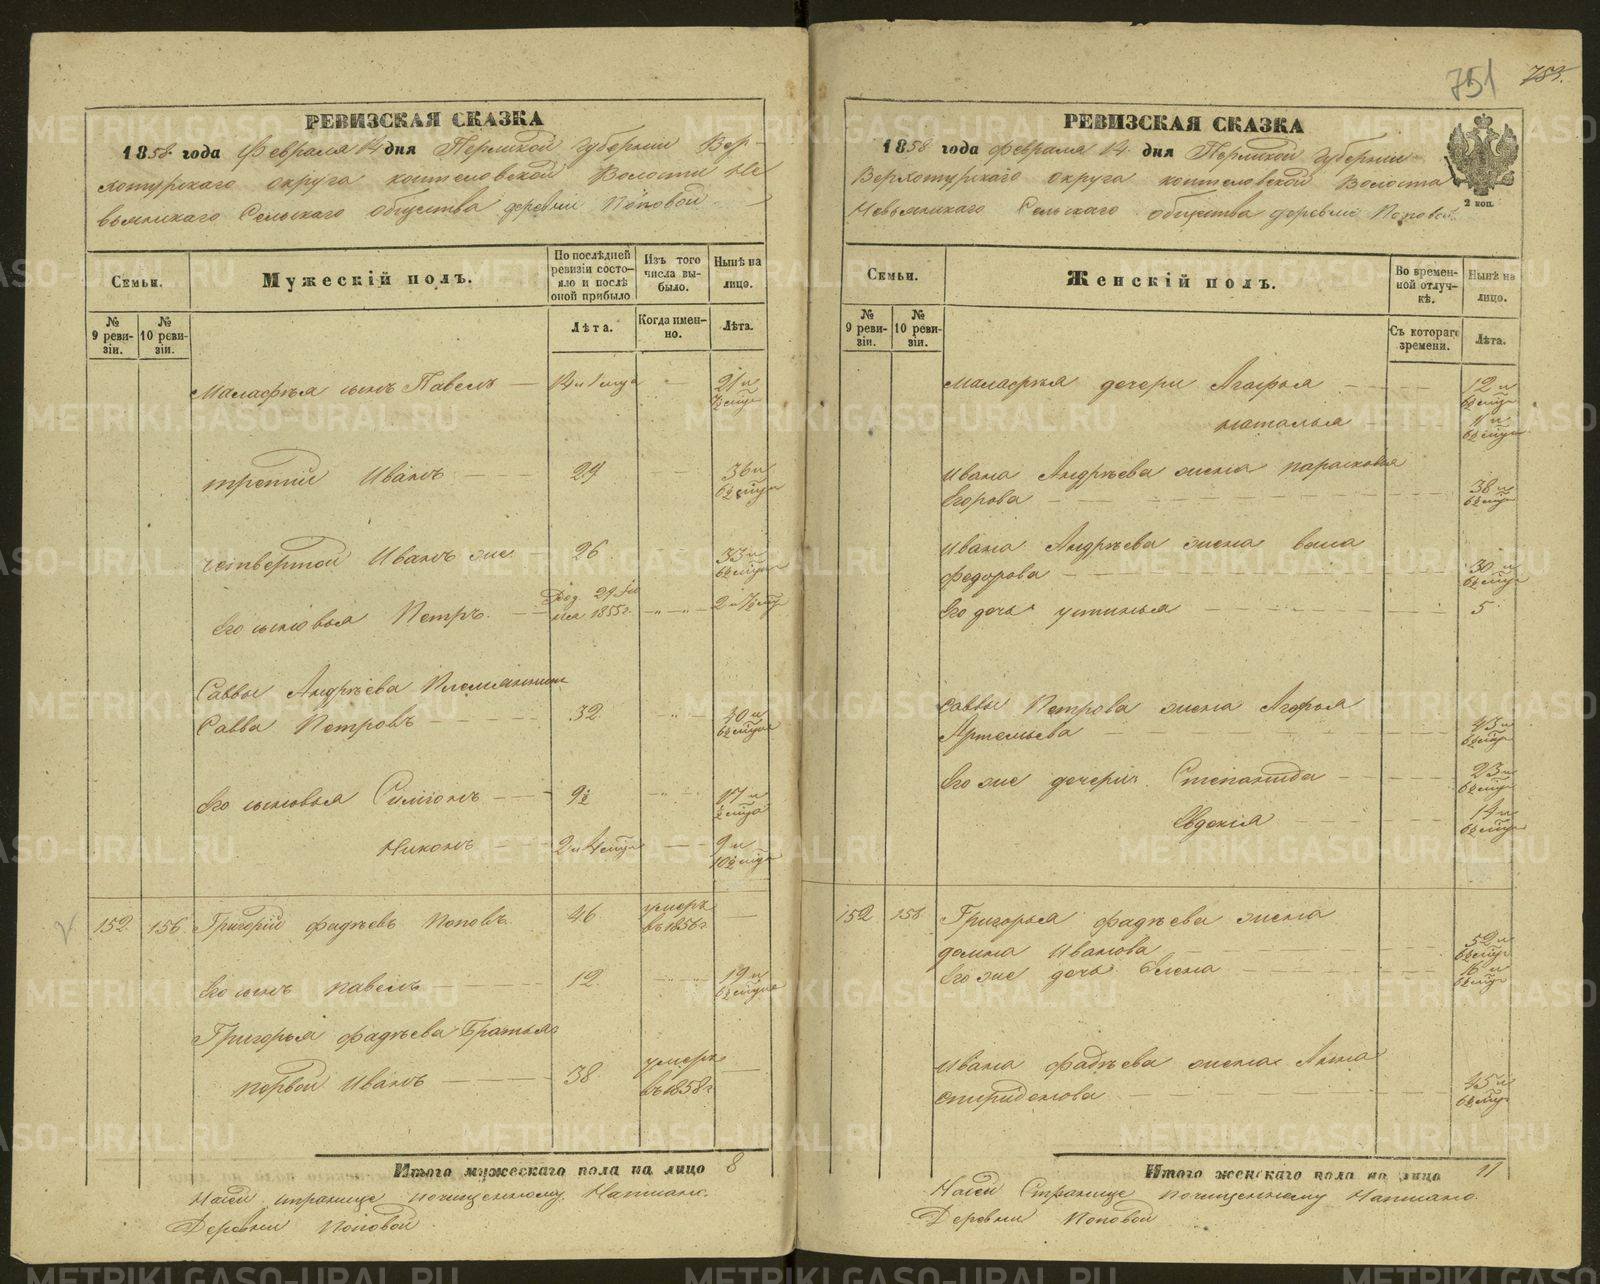 РЕВИЗСКАЯ СКАЗКА
1858 года Февраля 14 дня Пермской Губернии Вер-
хотурскаго округа коптеловской Волости Не
вьянскаго Сельскаго общества деревни Поповой
Семьи.
Мужескій полъ.
По послѣдней ревизіи состояло и послѣ оной прибыло
Изъ того числа выбыло.
Нынѣ на лицо.
№ 9 ревизіи.
№ 10 ревизіи.
Лѣта.
Когда именно.
Лѣта.
Малафѣя сынъ Павелъ — 14 и 1 мца — 21 и 7½ мца
третій Иванъ — 29 36 и 6½ мцa
четвертой Иванъ же — 26 33 и 6½ мца
Его сыновья Петръ — 29 1855 г. 2 и 7½ мца
Саввы Андрѣева Племянникъ
Савва Петровъ 32 40 и 6½ мца
Его сыновья Симіонъ — 9½ 17 и ½ мца
Никонъ — 2 и 4 мца — 9 и 10½ мца
152 156 Григорій Фадѣевъ Поповъ 46 умеръ въ 1856 г —
Его сынъ Павелъ 12 19 и 6½ мца
Григорья Фадѣева Братья
первой Иванъ 38 умеръ въ 1858 г —
Итого мужескаго пола на лицо 8
На сей странице почищенному Написано.
Деревни Поповой
751
753.
РЕВИЗСКАЯ СКАЗКА
1858 года Февраля 14 дня Пермской Губернии
Верхотурскаго округа коптеловской Волости
Невьянскаго Сельскаго общества деревни Поповой
2 коп.
Семьи.
Женскій полъ.
Во временной отлучкѣ.
Нынѣ на лицо.
№ 9 ревизіи.
№ 10 ревизіи.
Съ котораго времени.
Лѣта.
Малафѣя дочери Агафья 12 и 6½ мца
Наталья 11 и 6½ мца
Ивана Андрѣева жена парасковья
Егорова 38 и 6½ мца
Ивана Андрѣева жена
федорова 30 и 6½ мца
Его дочь устинья 5
Саввы Петрова жена Агафья
Артемьева 43 и 6½ мца
Его же дочери Степанида 23 и 6½ мца
Евдокія 14 и 6½ мца
152 156 Григорья фадѣева жена
домна Иванова 52 и 6½ мца
Его же дочь Елена 16 и 6½ мца
Ивана фадѣева жена Анна
спиридонова 45 и 6½ мца
Итого женскаго пола на лицо 11
На сей Странице почищенному Написано.
Деревни Поповой
METRIKI.GASO-URAL.RU